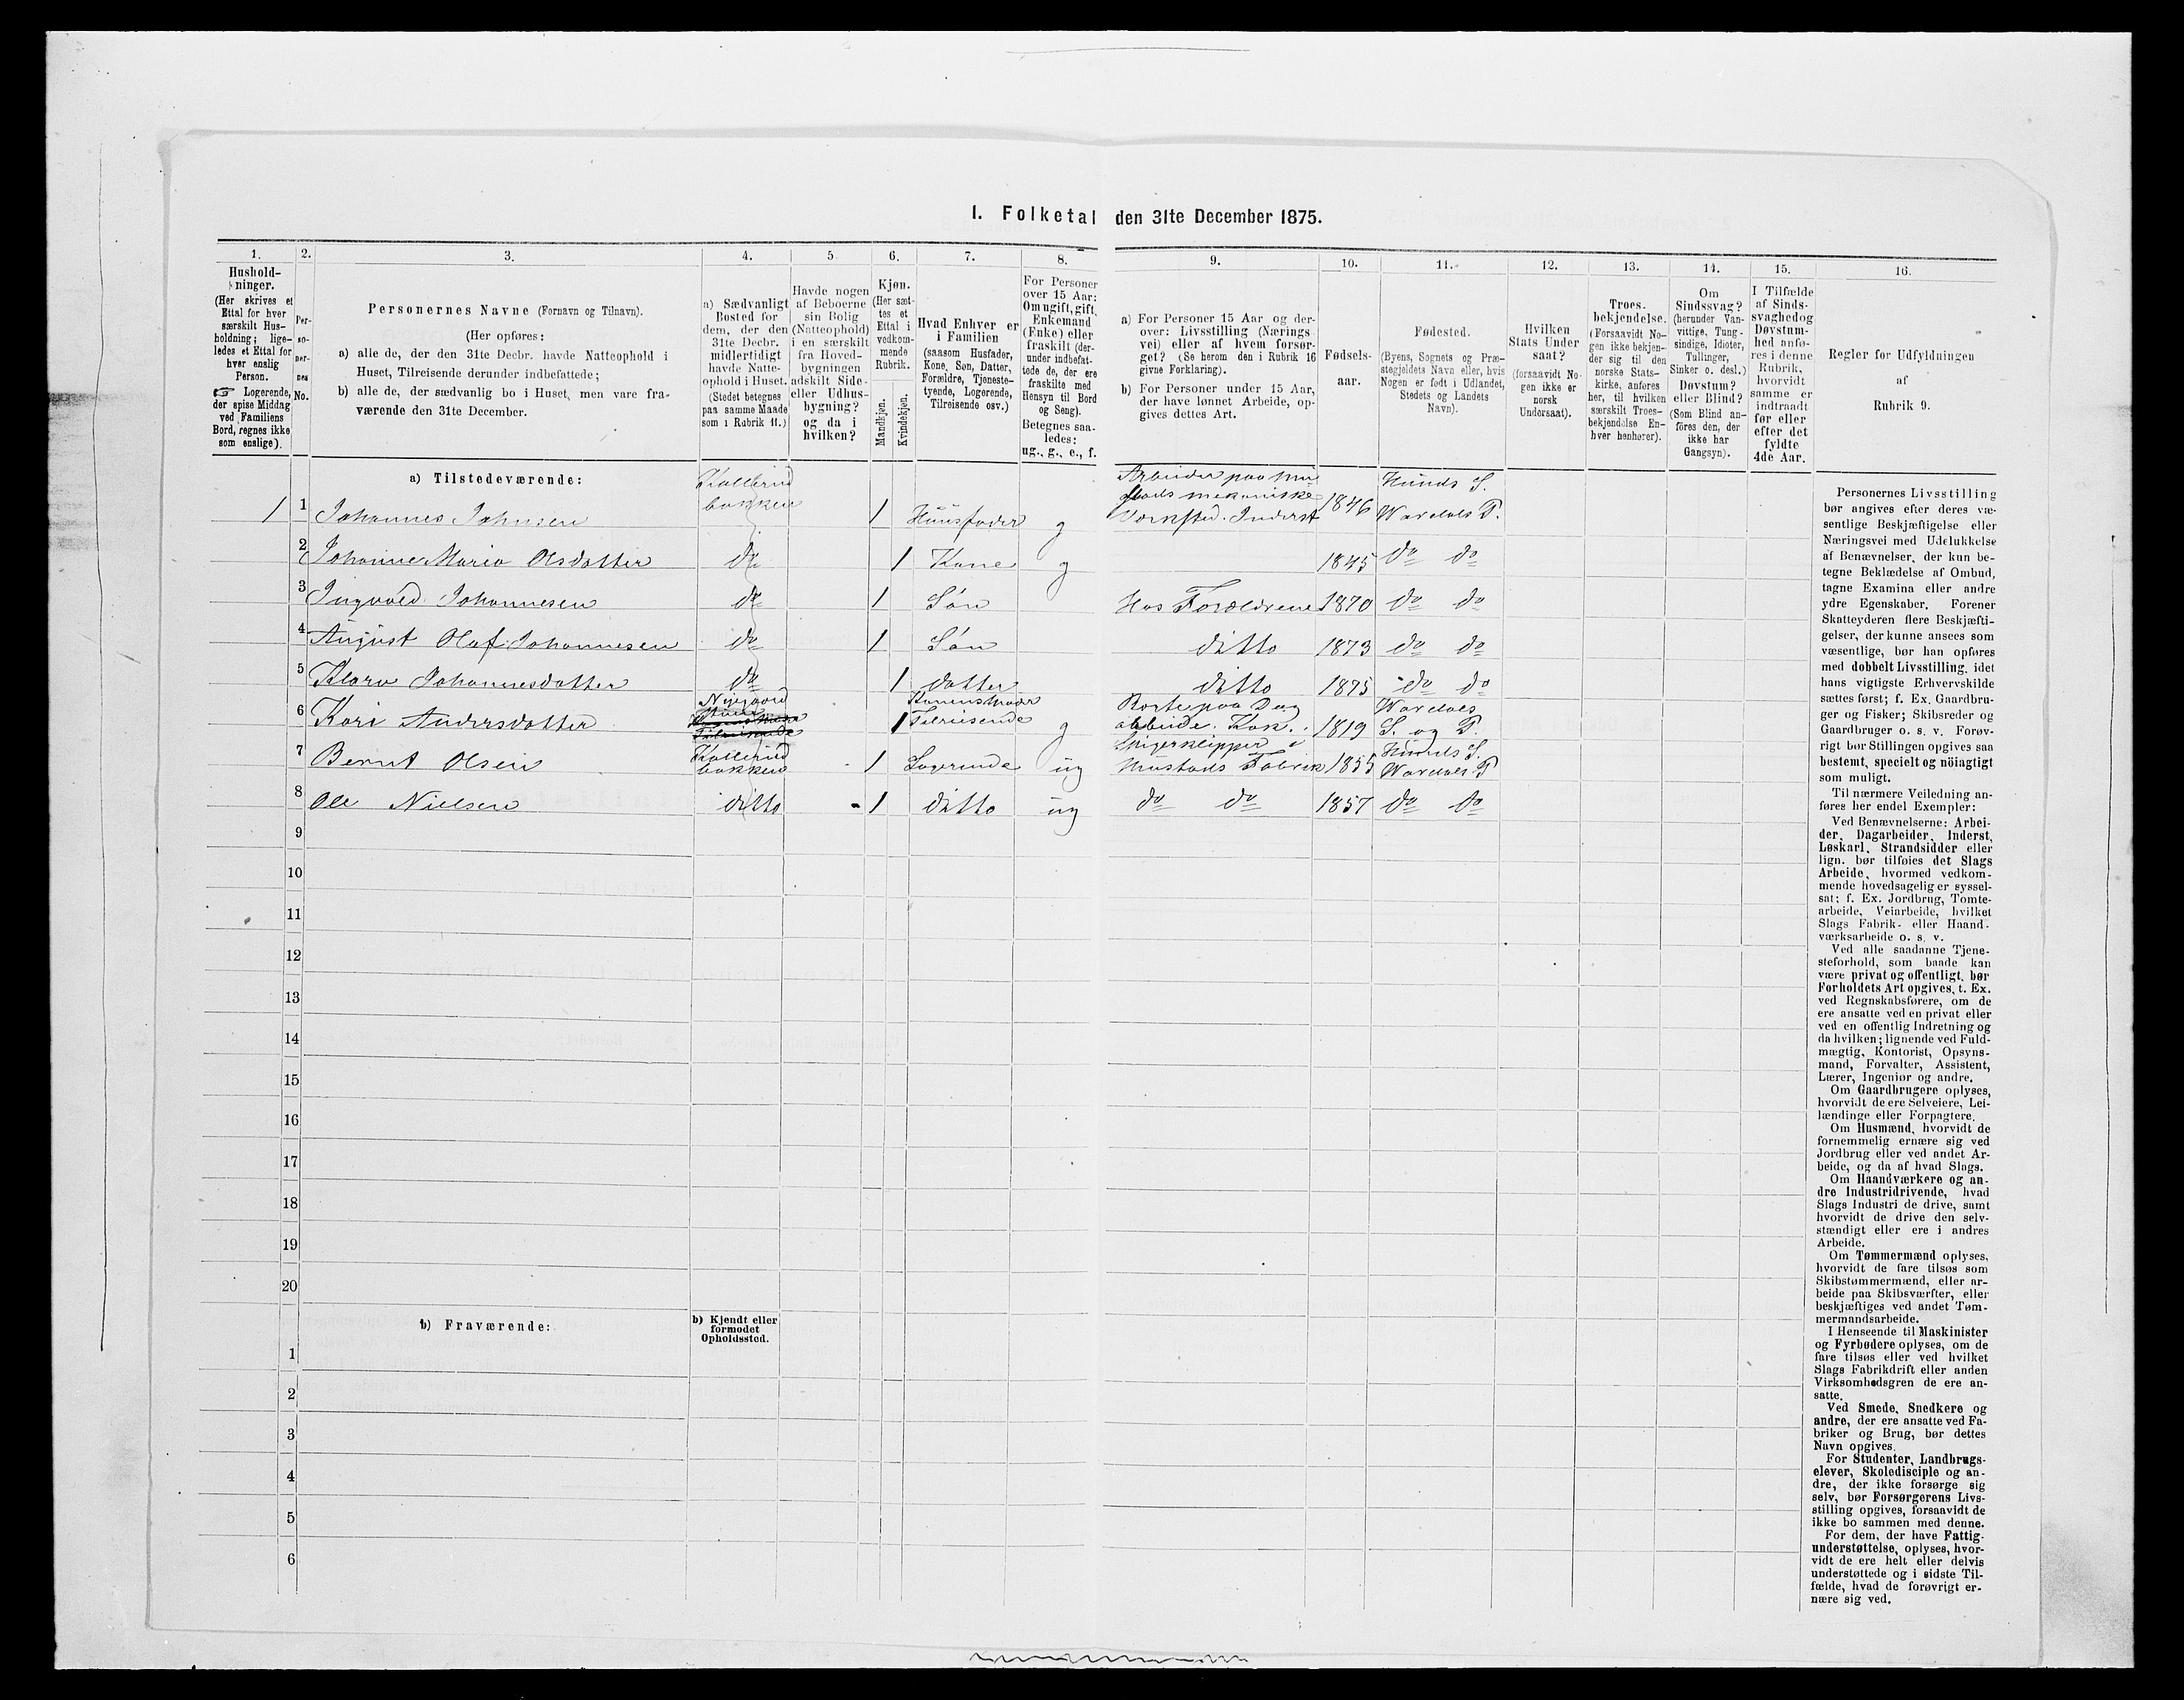 1. Folketal den 31te December 1875.
1. 2. 3. 4. 5. 6. 7. 8. 9. 10. 11. 12. 13. 14. 15. 16.
Hushold-
ninger.
(Her skrives et
Ettal for hver
særskilt Hus-
holdning; lige-
ledes et Ettal for
hver enslig
Person.
☞ Logerende,
der spise Middag
ved Familiens
Bord, regnes ikke
som enslige).
Per-
so-
ner-
nes
No.
Personernes Navne (Fornavn og Tilnavn).
(Her opføres:
a) alle de, der den 31te Decbr. havde Natteophold i
Huset, Tilreisende derunder indbefattede;
b) alle de, der sædvanlig bo i Huset, men vare fra-
værende den 31te December.
a) Sædvanligt
Bosted for
dem, der den
31te Decbr.
midlertidigt
havde Natte-
ophold i Huset.
(Stedet betegnes
paa samme Maade
som i Rubrik 11.)
Havde nogen
af Beboerne
sin Bolig
(Natteophold)
i en særskilt
fra Hoved-
bygningen
adskilt Side-
eller Udhus-
bygning?
og da i
hvilken?
Kjøn.
(Her sæt-
tes et
Ettal i
vedkom-
mende
Rubrik.
Mandkjøn.
Kvindekjøn.
Hvad Enhver er
i Familien
(saasom Husfader,
Kone, Søn, Datter,
Forældre, Tjeneste-
tyende, Logerende,
Tilreisende osv.)
For Personer
over 15 Aar:
Om ugift, gift,
Enkemand
(Enke) eller
fraskilt (der-
under indbefat-
tede de, der ere
fraskilte med
Hensyn til Bord
og Seng).
Betegnes saa-
ledes:
ug., g., e., f.
a) For Personer 15 Aar og der-
over: Livsstilling (Nærings
vei) eller af hvem forsør-
get? (Se herom den i Rubrik 16
givne Forklaring).
b) For Personer under 15 Aar,
der have lønnet Arbeide, op-
gives dettes Art.
Fødsels-
aar.
Fødested.
(Byens, Sognets og Præ-
stegjeldets Navn eller, hvis
Nogen er født i Udlandet,
Stedets og Landets
Navn).
Hvilken
Stats Under
saat?
(forsaavidt No-
gen ikke er
norsk
Undersaat).
Troes-
bekjendelse.
(Forsaavidt No-
gen ikke bekjen-
der sig til den
norske Stats-
kirke, anføres
her, til hvilken
særskilt Troes-
bekjendelse En-
hver henhører).
Om
Sindssvag?
(herunder Van-
vittige, Tung-
sindige, Idioter,
Tullinger,
Sinker o. desl.)
Døvstum?
eller Blind?
(Som Blind an-
føres den, der
ikke har
Gangsyn).
I Tilfælde
af Sinds-
svaghed og
Døvstum-
hed anfø-
res i denne
Rubrik,
hvorvidt
samme er
indtraadt
før eller
efter det
fyldte
4de Aar.
Regler for Udfyldningen
af
Rubrik 9.
a) Tilstedeværende:
1 1 Johannes Johnsen Kollerud bakken 1 Huusfader g Arbeider paa Mu stads mekaniske Værksted. Inderst 1846 Hunds S. Wardals P.
2 Johanne Maria Olsdatter do 1 Kone g 1845 do do
3 Ingvald Johannesen do 1 Søn Hos Forældrene 1870 do do
4 August Olaf Johannesen do 1 Søn ditto 1873 do do
5 Klara Johannesdatter do 1 datter ditto 1875 do do
6 Kari Andersdatter 1 Konens Moder Tilreisende g arbeide. 1819 Wardals S. og P.
7 Bernt Olsen Kollerud bakken 1 Logerende ug Spigerklipper i Mustads Fabrik 1855 Hunds S. Wardals P
8 Ole Nielsen ditto 1 ditto ug do do 1857 do do
9
10
11
12
13
14
15
16
17
18
19
20
b) Fraværende:
b) Kjendt eller
formodet
Opholdssted.
1
2
3
4
5
6
Personernes Livsstilling
bør angives efter deres væ-
sentlige Beskjæftigelse eller
Næringsvei med Udelukkelse
af Benævnelser, der kun be-
tegne Beklædelse af Ombud,
tagne Examina eller andre
ydre Egenskaber. Forener
Skatteyderen flere Beskjæfti-
gelser, der kunne ansees som
væsentlige, bør han opføres
med dobbelt Livsstilling, idet
hans vigtigste Erhvervskilde
sættes først; f. Ex. Gaardbru-
ger og Fisker; Skibsreder og
Gaardbruger o. s. v. Forøv-
rigt bør Stillingen opgives saa
bestemt, specielt og nöiagtigt
som muligt.
Til nærmere Veiledning an-
føres her endel Exempler:
Ved Benævnelserne: Arbei-
der, Dagarbeider, Inderst,
Løskarl, Strandsidder eller
lign. bør tilføies det Slags
Arbeide, hvormed vedkom-
mende hovedsagelig er syssel-
sat; f. Ex. Jordbrug, Tomte-
arbeide, Veiarbeide, hvilket
Slags Fabrik- eller Haand-
værksarbeide o. s. v.
Ved alle saadanne Tjene-
steforhold, som baade kan
være privat og offentligt, bør
Forholdets Art opgives, t. Ex.
ved Regnskabsførere, om de
ere ansatte ved en privat eller
ved en offentlig Indretning og
da hvilken; lignende ved Fuld-
mægtig, Kontorist, Opsyns-
mand, Forvalter, Assistent,
Lærer, Ingeniør og andre.
Om Gaardbrugere oplyses,
hvorvidt de ere Selveiere, Lei-
lændinge eller Forpagtere.
Om Husmænd, hvorvidt de
fornemmelig ernære sig ved
Jordbrug eller ved andet Ar-
beide, og da af hvad Slags.
Om Haandværkere og an-
dre Industridrivende, hvad
Slags Industri de drive, samt
hvorvidt de drive den selv-
stændigt eller ere i andres
Arbeide.
Om Tømmermænd oplyses,
hvorvidt de fare tilsøs som
Skibstømmermænd, eller ar-
beide paa Skibsværfter, eller
beskjæftiges ved andet Tøm-
mermandsarbeide.
I Henseende til Maskinister
og Fyrbødere oplyses, om de
fare tilsøs eller ved hvilket
Slags Fabrikdrift eller anden
Virksomhedsgren de ere an-
satte.
Ved Smede, Snedkere og
andre, der ere ansatte ved Fa-
briker og Brug, bør dettes
Navn opgives.
For Studenter, Landbrugs-
elever, Skoledisciple og an-
dre, der ikke forsørge sig
selv, bør Forsørgerens Livs-
stilling opgives, forsaavidt de
ikke bo sammen med denne.
For dem, der have Fattig-
understøttelse, oplyses, hvor-
vidt de ere helt eller delvis
understøttede og i sidste Til-
fælde, hvad de forøvrigt er-
nære sig ved.